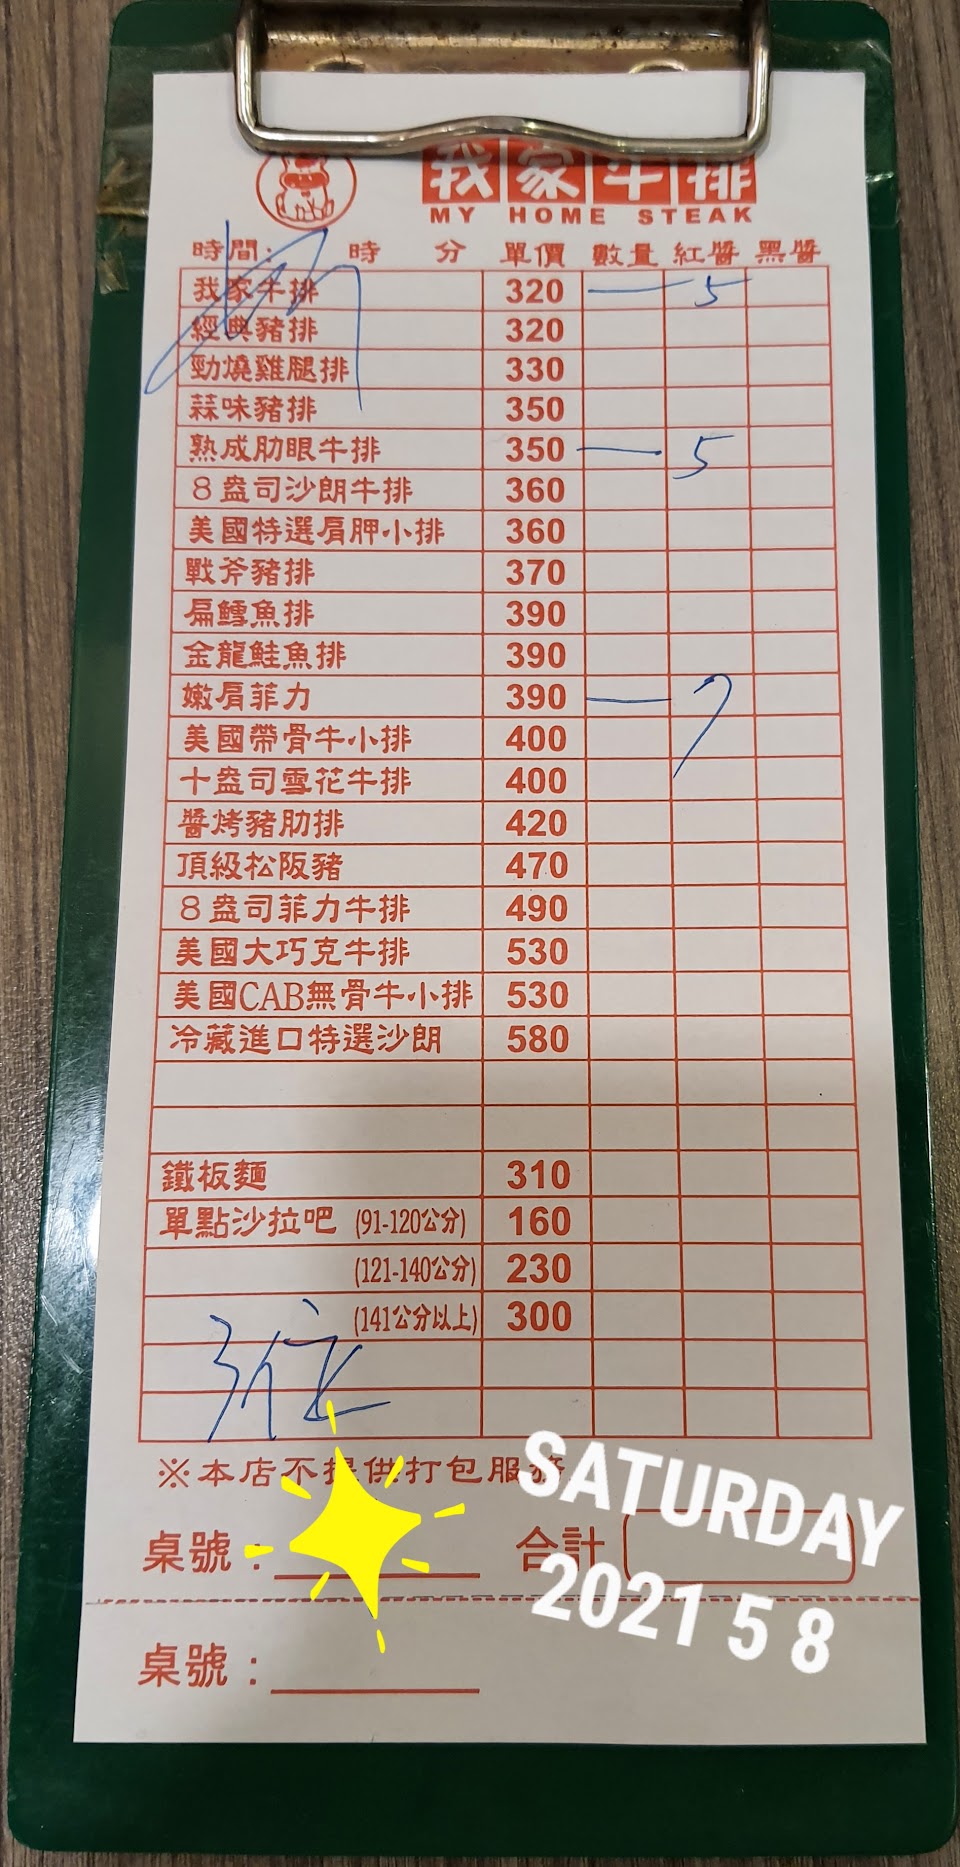 我家牛排
MY HOME STEAK
時間: 時 分 單價 數量 紅醬 黑醬
我家牛排 320 一 5
經典豬排 320
勁燒雞腿排 330
蒜味豬排 350
熟成肋眼牛排 350 一 5
8盎司沙朗牛排 360
美國特選肩胛小排 360
戰斧豬排 370
扁鱈魚排 390
金龍鮭魚排 390
嫩肩菲力 390 一 7
美國帶骨牛小排 400
十盎司雪花牛排 400
醬烤豬肋排 420
頂級松阪豬 470
8盎司菲力牛排 490
美國大巧克牛排 530
美國CAB無骨牛小排 530
冷藏進口特選沙朗 580
鐵板麵 310
單點沙拉吧 (91-120公分) 160
(121-140公分) 230
(141公分以上) 300
3位
※本店不提供打包服務
SATURDAY
桌號: 合計
2021 5 8
桌號: